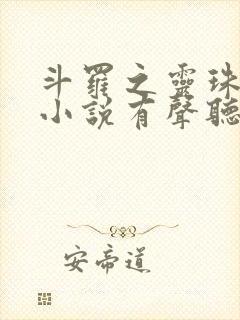 斗羅之靈珠
小說有聲聽
安帝道